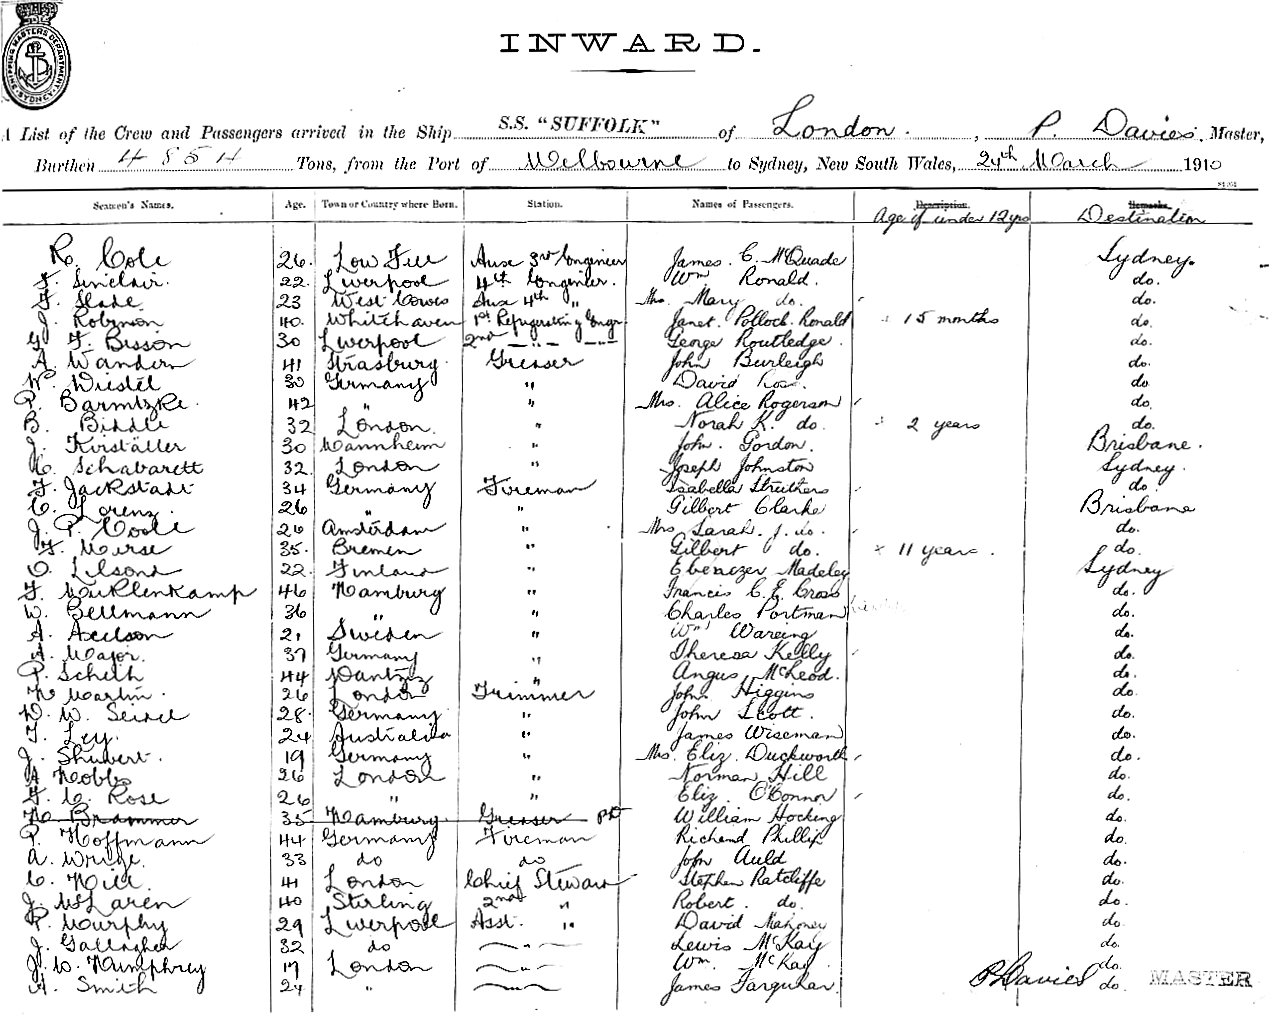 SHIPPING MASTERS DEPARTMENT SYDNEY
INWARD.
A List of the Crew and Passengers arrived in the Ship S.S. "SUFFOLK" of London. , P. Davies, Master,
Burthen 4854 Tons, from the Port of Melbourne to Sydney, New South Wales, 24th March 1910
Seamen's Names. Age. Town or Country where Born. Station. Names of Passengers. Description. Remarks.
Age if under 12 yrs Destination
R. Cole 26. Low Fell Aux 3rd Engineer James. C. McQuade Sydney.
F. Sinclair. 22. Liverpool 4th Engineer. Wm Ronald. do.
F. Slade 23 West Cowes Aux 4th " Mrs. Mary do. do.
J. Robinson 40. Whitehaven 1st Refrigerating Engr Janet. Pollock. Ronald 15 months do.
G. F. Bisson 30 Liverpool 2nd —"— —"— George Routledge. do.
A. Wandern 41 Strasburg. Greaser John Burleigh do.
W. 30 Germany " David Ross. do.
P. Barmtzke. 42 " " Mrs. Alice Rogerson do.
B. Biddle 32 London. " Norah K. do. 2 years do.
J. Kirstätter 30 Mannheim " John. Gordon. Brisbane.
Schabarett 32. London " Joseph Johnston Sydney.
F. Jackstadt 34 Germany Fireman Isabella Struthers do.
C. Lorenz. 26 " " Gilbert Clarke Brisbane
J. P. Coole 26 Amsterdam " Mrs Sarah. J. do. do.
35. Bremen " Gilbert do. 11 years. do.
O. 22. Finland " Ebenezer Madeley Sydney
F. Mecklenkamp 46 Hamburg " Francis C. E. Cross do.
W. Bellmann 36 " " Charles Portman do.
A. Axelson 21 Sweden " Wm Wareing do.
A. Major. 37 Germany " Theresa Kelly do.
P. Scheth 44 Dantzig " Angus McLeod. do.
Martin. 26 London Trimmer John Higgins do.
W. Seidel 28. Germany " John Scott. do.
T. Ley. 24 Australia " James Wiseman do.
J. Shubert. 19 Germany " Mrs. Eliz. Duckworth do.
A Hobbs 26 London " Norman Hill do.
F. C. Rose 26 " " Eliz O'Connor do.
H. Brammer 35 Hamburg Greaser PD William Hocking do.
P. Hoffmann 44 Germany Fireman Richard Phillips do.
A. 33 do do John Auld do.
C. Hill. 41 London Chief Steward Stephen Ratcliffe do.
J. McLaren 40 Stirling 2nd " Robert. do. do.
P. Murphy 29 Liverpool Asst. " David Mahoney do.
J. Gallagher 32 do Lewis McKay do.
J. C. Humphrey 17 London Wm. McKay do.
A. Smith 24 " James Farquhar. P Davies do. MASTER